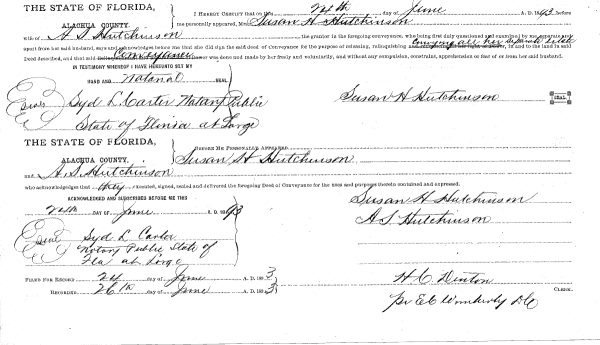 THE STATE OF FLORIDA,
ALACHUA COUNTY.
I HEREBY CERTIFY that on this 24th day of June A. D. 1893 before
me personally appeared, Mrs Susan H Hutchinson
wife of A S Hutchinson the grantor in the foregoing conveyance, who being first duly questioned and examined by me separately
apart from her said husband, say and acknowledge before me that she did sign the said deed of Conveyance for the purpose of releasing, relinquishing and conveying all her separate estate in and to the land in said
Deed described, and that said Conveyance was done and made by her freely and voluntarily, and without any compulsion, constraint, apprehension or fear of or from her said husband.
IN TESTIMONY WHEREOF I HAVE HEREUNTO SET MY
HAND AND Notarial SEAL
Seal Syd L. Carter Notary Public
State of Florida at Large
Susan H Hutchinson SEAL
THE STATE OF FLORIDA,
ALACHUA COUNTY.
BEFORE ME PERSONALLY APPEARED
Susan H Hutchinson
and A. S. Hutchinson
who acknowledges that they executed, signed, sealed and delivered the foregoing Deed of Conveyance for the uses and purposes therein contained and expressed.
ACKNOWLEDGED AND SUBSCRIBED BEFORE ME THIS
24th DAY OF June A. D. 1893
Susan H Hutchinson
A S Hutchinson
Seal Syd L. Carter
Notary Public State of
Fla at Large
FILED FOR RECORD 24 day of June A. D. 1893
RECORDED 26th day of June A. D. 1893
H. C. Denton CLERK.
pr E C Wimberly D C